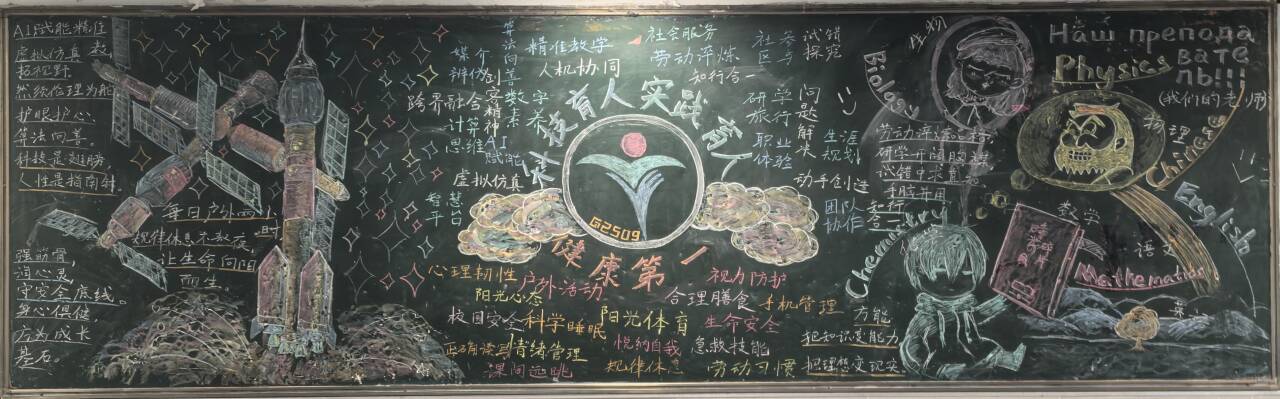 AI赋能精准
虚拟仿真 教
拓视野
然须伦理为舵
护眼护心
算法向善。
科技是翅膀
人性是指南针
每日户外两小时
规律休息不熬夜
让生命向阳
而生
强筋骨,
润心灵
守安全底线。
身心俱健
方为成长
基石。
算法向善
精准教学
人机协同
社会服务
劳动淬炼
知行合一
社区
参与
试错
探究
媒介
辨伪
创客精神
跨界融合
数字
素养
计算
思维
AI
赋能
虚拟仿真
智慧
平台
研学
旅行
问题解决
职业
体验
生涯
规划
动手创造
团队
协作
科技育人实践育人
G2509
健康第一
心理韧性
户外活动
视力防护
阳光心态
合理膳食
手机管理
校园安全
科学睡眠
阳光体育
生命安全
正确读写
情绪管理
悦纳自我
急救技能
课间远眺
规律休息
劳动习惯
生物
Biology
劳动淬炼品格
研学开阔眼界
试错中求真
手脑并用
知行
合一
方能
把知识变能力
把理想变现实
Chemistry
Наш препода
вате
ль!!!
(我们的老师)
Physics
物理
Chinese
English
数学
语文
Mathematics